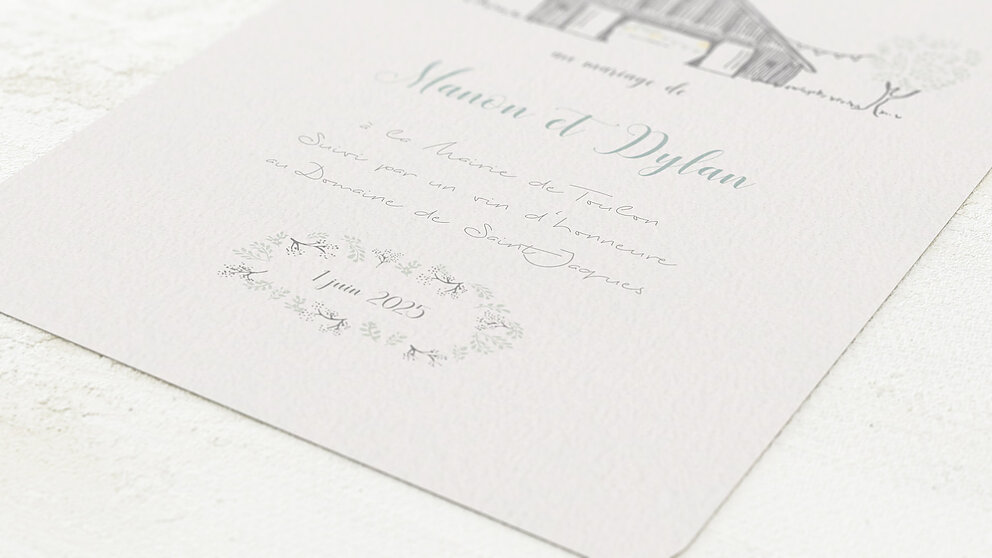 au mariage de
Manon et Dylan
à la Mairie de Toulon
Suivi par un vin d'honneure
au Domaine de Saint-Jaques
1 juin 2025